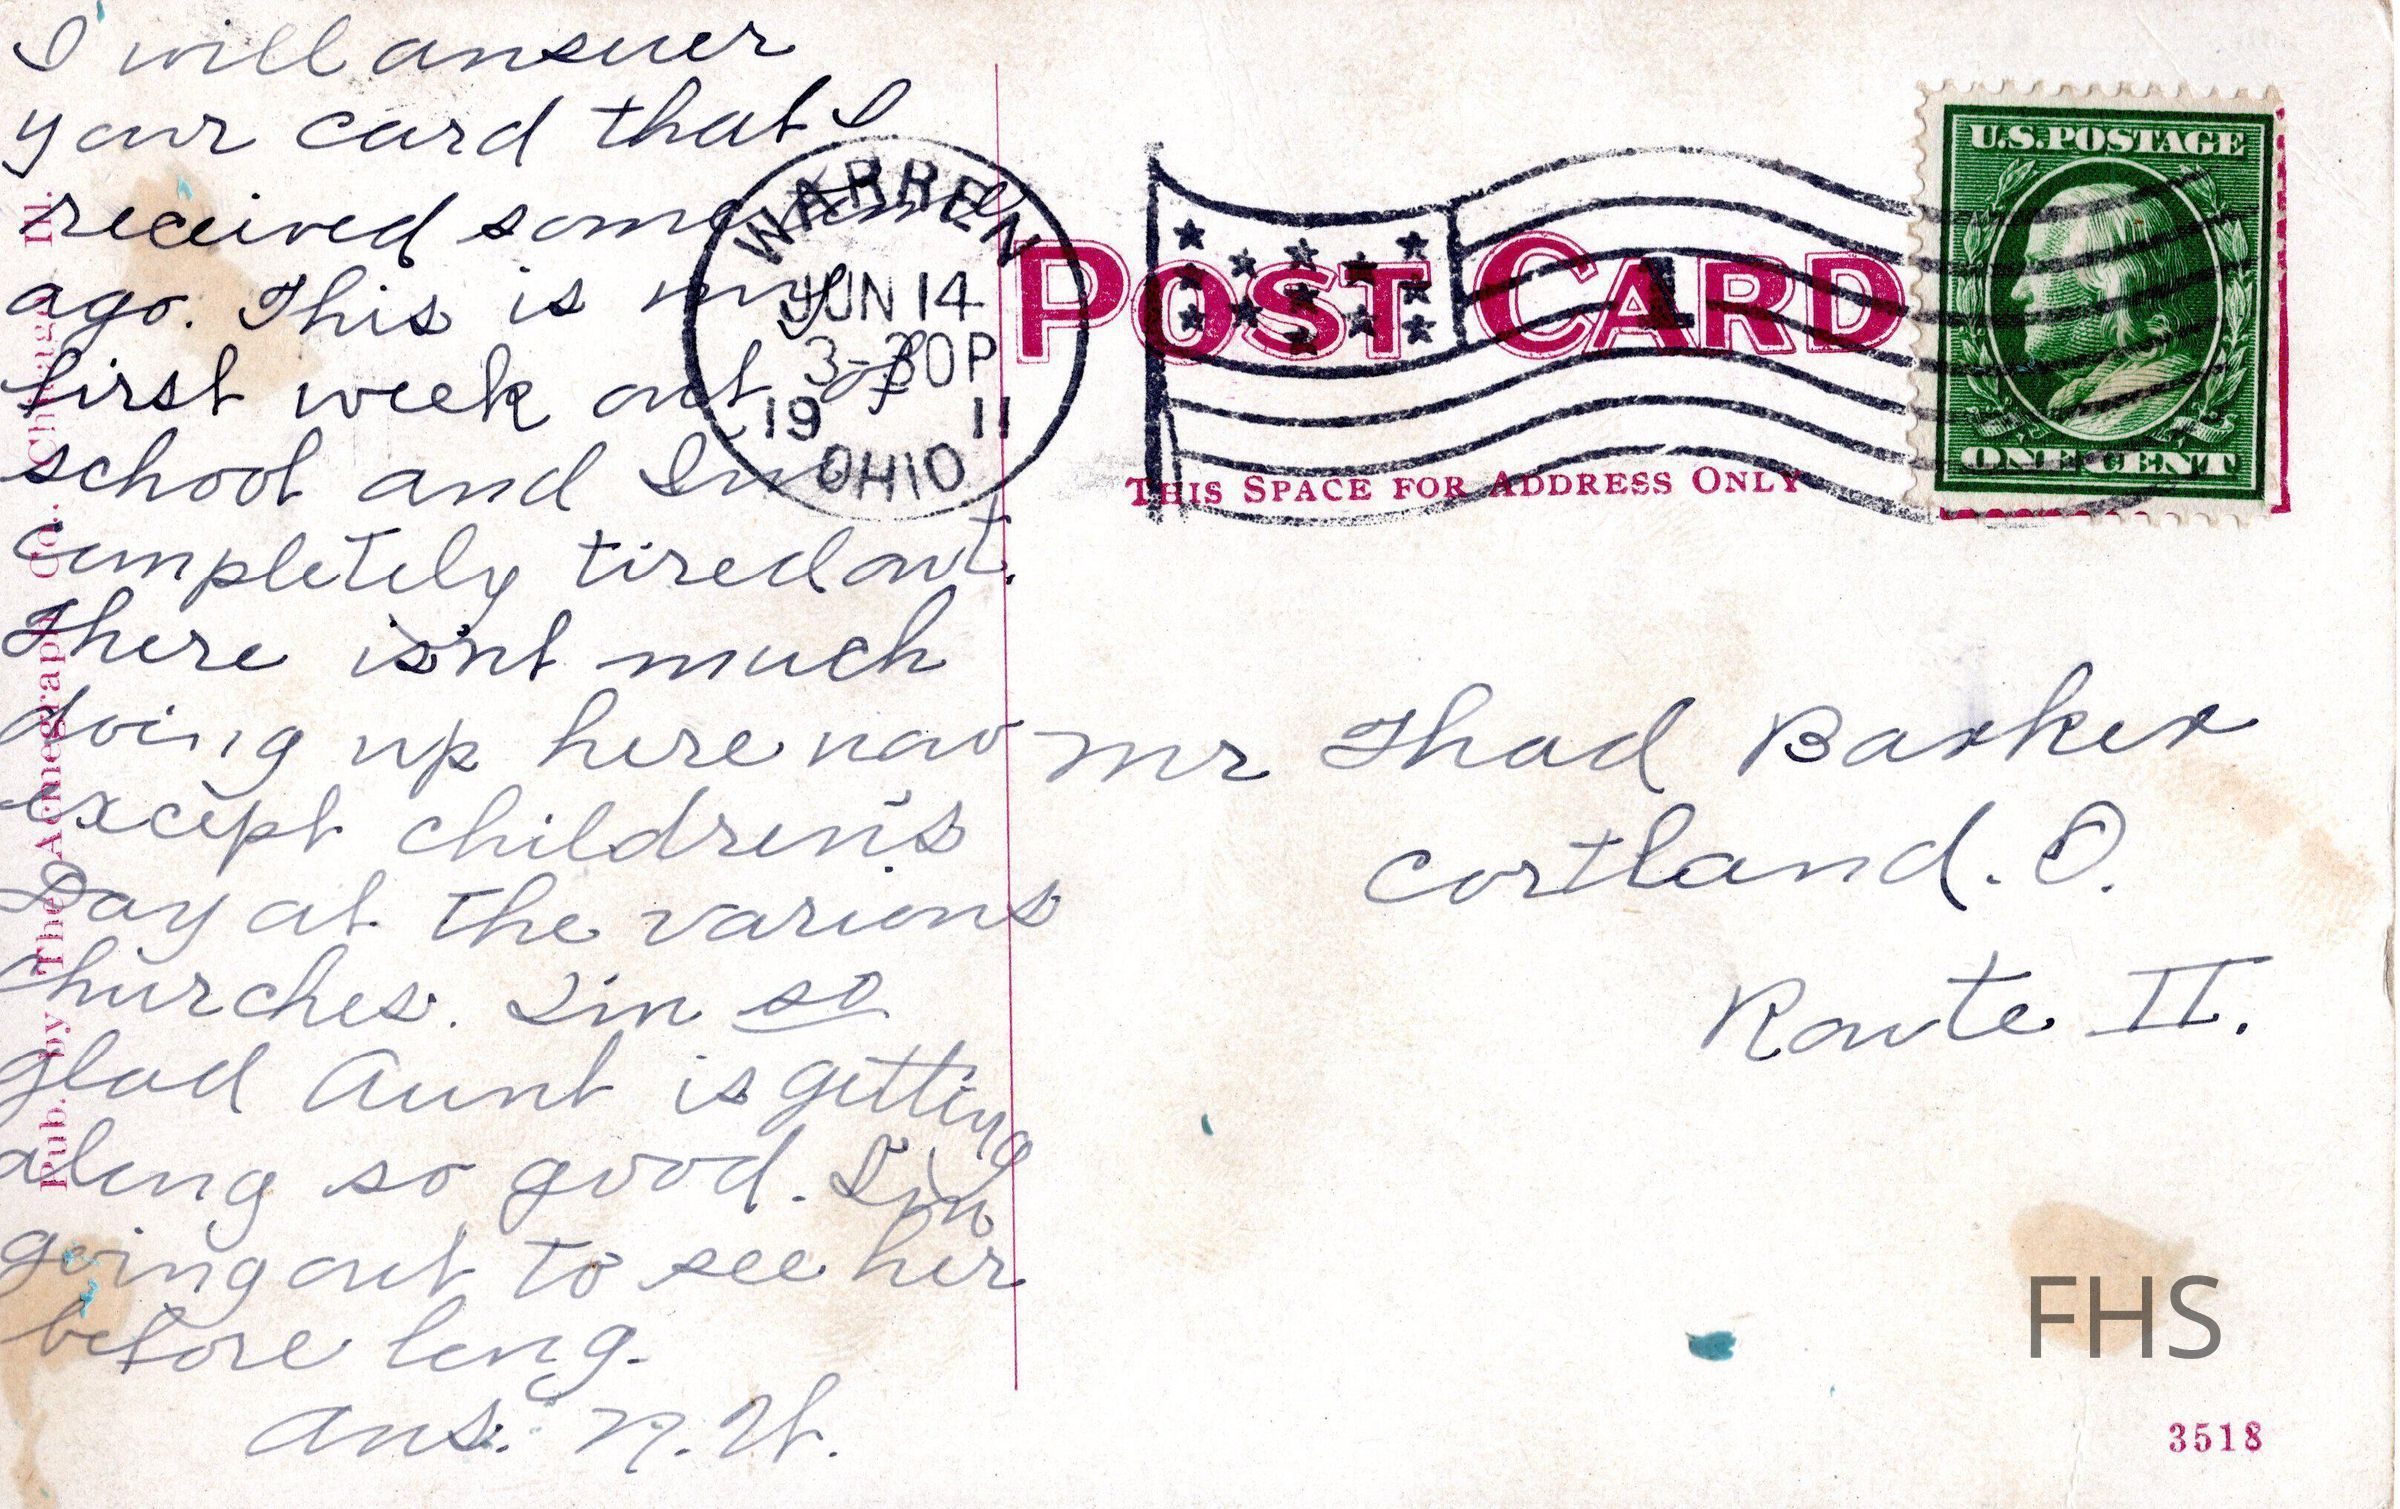 I will answer
your card that I
received some time
ago. This is my
first week out of
school and I'm
completely tired out.
There isn't much
doing up here now
except children's
Day at the various
churches. I'm so
glad Aunt is getting
along so good. I'm
going out to see her
before long.
Ans. N.W.
Pub. by The Acmegraph Co. Chicago Ill.
WARREN
JUN 14
3-30P
19 11
OHIO
POST CARD
1
THIS SPACE FOR ADDRESS ONLY
U.S. POSTAGE
ONE CENT
Mr Thad Barker
Cortland. O.
Route II.
FHS
3518